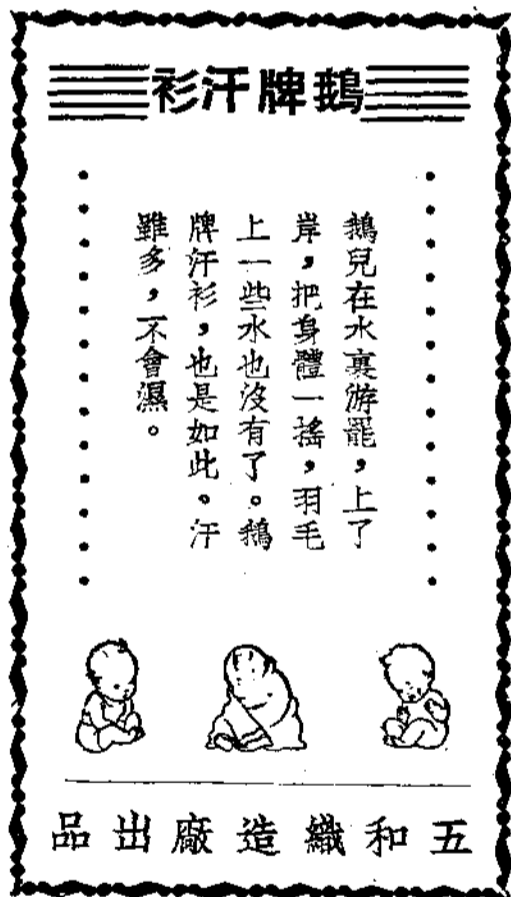 鵝牌汗衫
鵝兒在水裏游罷，上了
岸，把身體一搖，羽毛
上一些水也沒有了。鵝
牌汗衫，也是如此。汗
雖多，不會濕。
五和織造廠出品